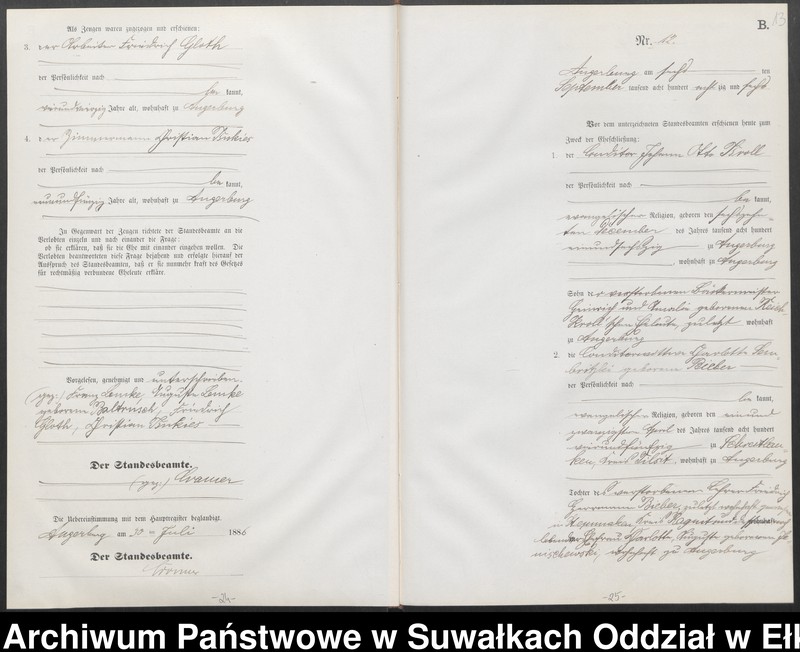 Als Zeugen waren zugezogen und erschienen:
3. der Arbeiter Friedrich Gloth
der Persönlichkeit nach
be kannt,
Jahre alt, wohnhaft zu Angerburg
4. der Zimmermann Christian
der Persönlichkeit nach
be kannt,
Jahre alt, wohnhaft zu Angerburg
In Gegenwart der Zeugen richtete der Standesbeamte an die
Verlobten einzeln und nach einander die Frage:
ob sie erklären, daß sie die Ehe mit einander eingehen wollen. Die
Verlobten beantworteten diese Frage bejahend und erfolgte hierauf der
Ausspruch des Standesbeamten, daß er sie nunmehr kraft des Gesetzes
für rechtmäßig verbundene Eheleute erkläre.
Vorgelesen, genehmigt und unterschrieben
(gez.) Franz Lemke, Auguste Lemke
geborene, Friedrich
Gloth, Christian
Der Standesbeamte.
(gez.) Kramer
Die Uebereinstimmung mit dem Hauptregister beglaubigt.
Angerburg am Juli 1886
Der Standesbeamte.
-24-
B. 13
Nr. 12.
Angerburg am ten
September tausend acht hundert acht zig und sechs
Vor dem unterzeichneten Standesbeamten erschienen heute zum
Zweck der Eheschließung:
1. der Conditor Johann Otto Kroll
der Persönlichkeit nach
be kannt,
evangelischer Religion, geboren den sechszehn-
ten Dezember des Jahres tausend acht hundert
einundsechszig zu Angerburg
, wohnhaft zu Angerburg
Sohn der verstorbenen Bäckermeister
Heinrich und Amalie geborenen
Kroll'schen Eheleute, zuletzt wohnhaft
zu Angerburg
2. die Conditorwittwe Charlotte
geborene Bieber
der Persönlichkeit nach
be kannt,
evangelischer Religion, geboren den einund
zwanzigsten April des Jahres tausend acht hundert
vierundfünfzig zu
Kreis Tilsit, wohnhaft zu Angerburg
Tochter des verstorbenen Lehrer Friedrich
Herrmann Bieber, zuletzt wohnhaft
in Kreis Ragnit und dessen
lebender Ehefrau Charlotte, Auguste geborenen
, wohnhaft zu Angerburg
-25-
Archiwum Państwowe w Suwałkach Oddział w Ełk